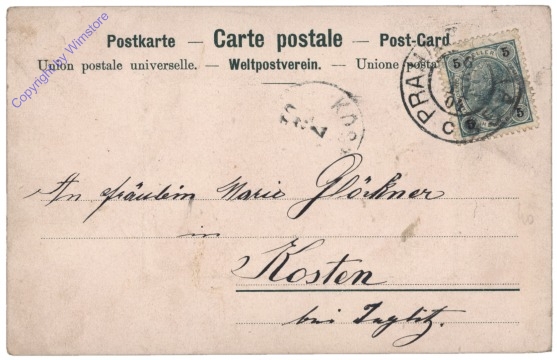 Postkarte — Carte postale — Post-Card
Union postale universelle. — Weltpostverein. — Unione posta
5 HELLER 5
5 5
PRA
KOS
An fräulein Marie Glöckner
in
Kosten
bei
Copyright by Wimstore